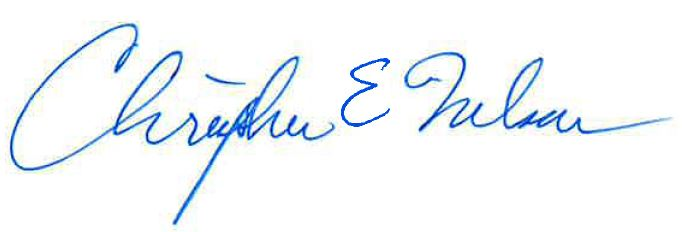 Christopher E Nelson